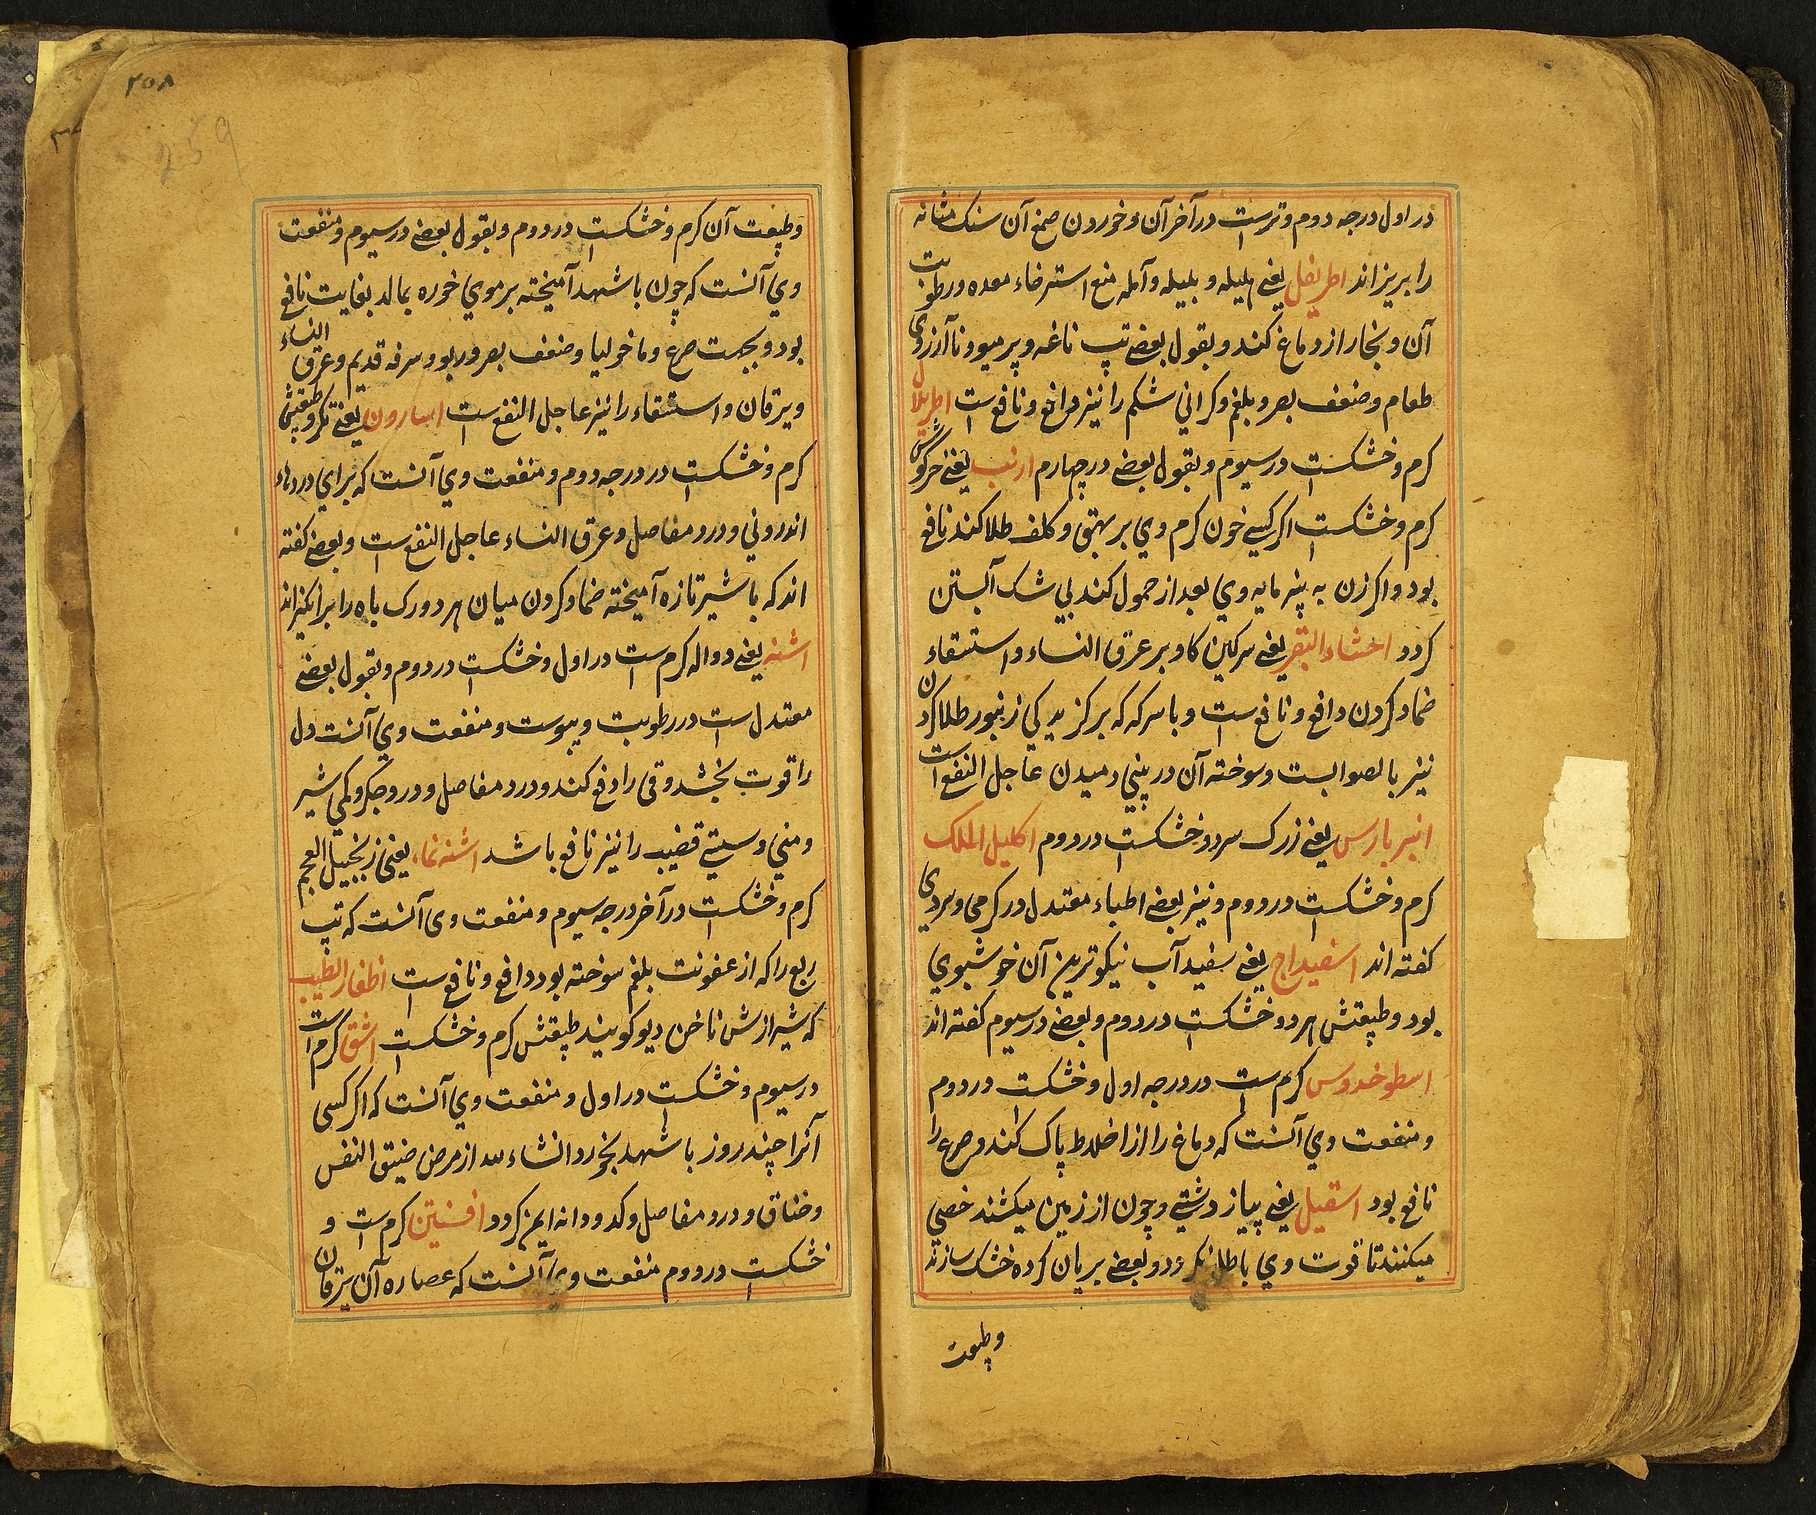 در اول درجه دوم و ترست در آخر آن و خوردن صمغ آن سنک مثانه
را بریزاند اطریفل یعنے هلیله و بلیله و آمله منع استرخاء معده و رطوبت
آن و بخار از دماغ کند و بقول بعضے تپ ناغه و پر میود نا آرزوی
طعام و ضعف بصر و بلغم و کرانی شکم را نیز دافع و نافع ست اطریلال
کرم و خشکست در سیوم و بقول بعضے در چهارم ارنب یعنے خرکوش
کرم و خشکست اکر کسے خون کرم وي بر بهق و کلف طلا کند نافع
بود و اکر زن به پنیر مایه وي بعد از حمول کند بي شک آبستن
کردد اخشاء البقر یعنے سرکین کاو بر عرق النساء و استسقاء
ضماد کردن دافع و نافع ست و با سرکه که بر کزیدکي زنبور طلا کردن
نیز بالصوابست و سوخته آن در بیني دمیدن عاجل النفع است
انبر بارس یعنے زرک سرد و خشکست در دوم اکلیل الملک
کرم و خشکست در دوم و نیز بعضے اطباء معتدل در کرمی و سردی
کفته اند اسفیداج یعنے سفید آب نیکوترین آن خوشبوي
بود و طبیعتش هر دو خشکست در دوم و بعضے در سیوم کفته اند
اسطوخدوس کرم ست در درجه اول و خشکت در دوم
و منفعت وي آنست که دماغ را از اخلاط پاک کند و صرع را
نافع بود اسقیل یعنے پیاز دشتے و چون از زمین میکشند خصي
میکنند تا قوت وي باطل نکردد و بعضے بریان کرده خشک سازند
و طبیعت
۲۵۸
259
و طبیعت آن کرم و خشکست در دوم و بقول بعضے در سیوم و منفعت
وي آنست که چون با شهد آمیخته بر موي خوره بمالد بغایت نافع
بود و بجهت صرع و ماخولیا و ضعف بصر و ربو و سرفه قدیم و عرق النساء
و یرقان و استسقاء را نیز عاجل النفع ست اسارون یعنے تکر و طبیعتش
کرم و خشکست در درجه دوم و منفعت وي آنست که براي دردهاء
اندروني و درد مفاصل و عرق النساء عاجل النفع ست و بعضے کفته
اند که با شیر تازه آمیخته ضماد کردن میان هر دو ورک باه را برانکیزاند
اشنه یعنے دواله کرم ست در اول و خشکست در دوم و بقول بعضے
معتدل ست در رطوبت و یبوست و منفعت وي آنست دل
را قوت بخشد و قی را دفع کند و درد مفاصل و درد جکر و کمي شیر
و مني و سستے قضیب را نیز نافع باشد اشنه نماء یعنی زنجبیل العجم
کرم و خشکست در آخر درجه سیوم و منفعت وی آنست که تپ
ربع را که از عفونت بلغم سوخته بود دافع و نافع ست اظفار الطیب
که شیرازش ناخن دیو کویند طبیعتش کرم و خشکست اشق کرم است
در سیوم و خشکست در اول و منفعت وي آنست که اکر کسی
آنرا چند روز با شهد بخورد انشاء لله از مرض ضیق النفس
و خناق و درد مفاصل و کدو دانه ایمن کردد افسنتین کرم ست و
خشکست در دوم منفعت وي آنست که عصاره آن یرقان